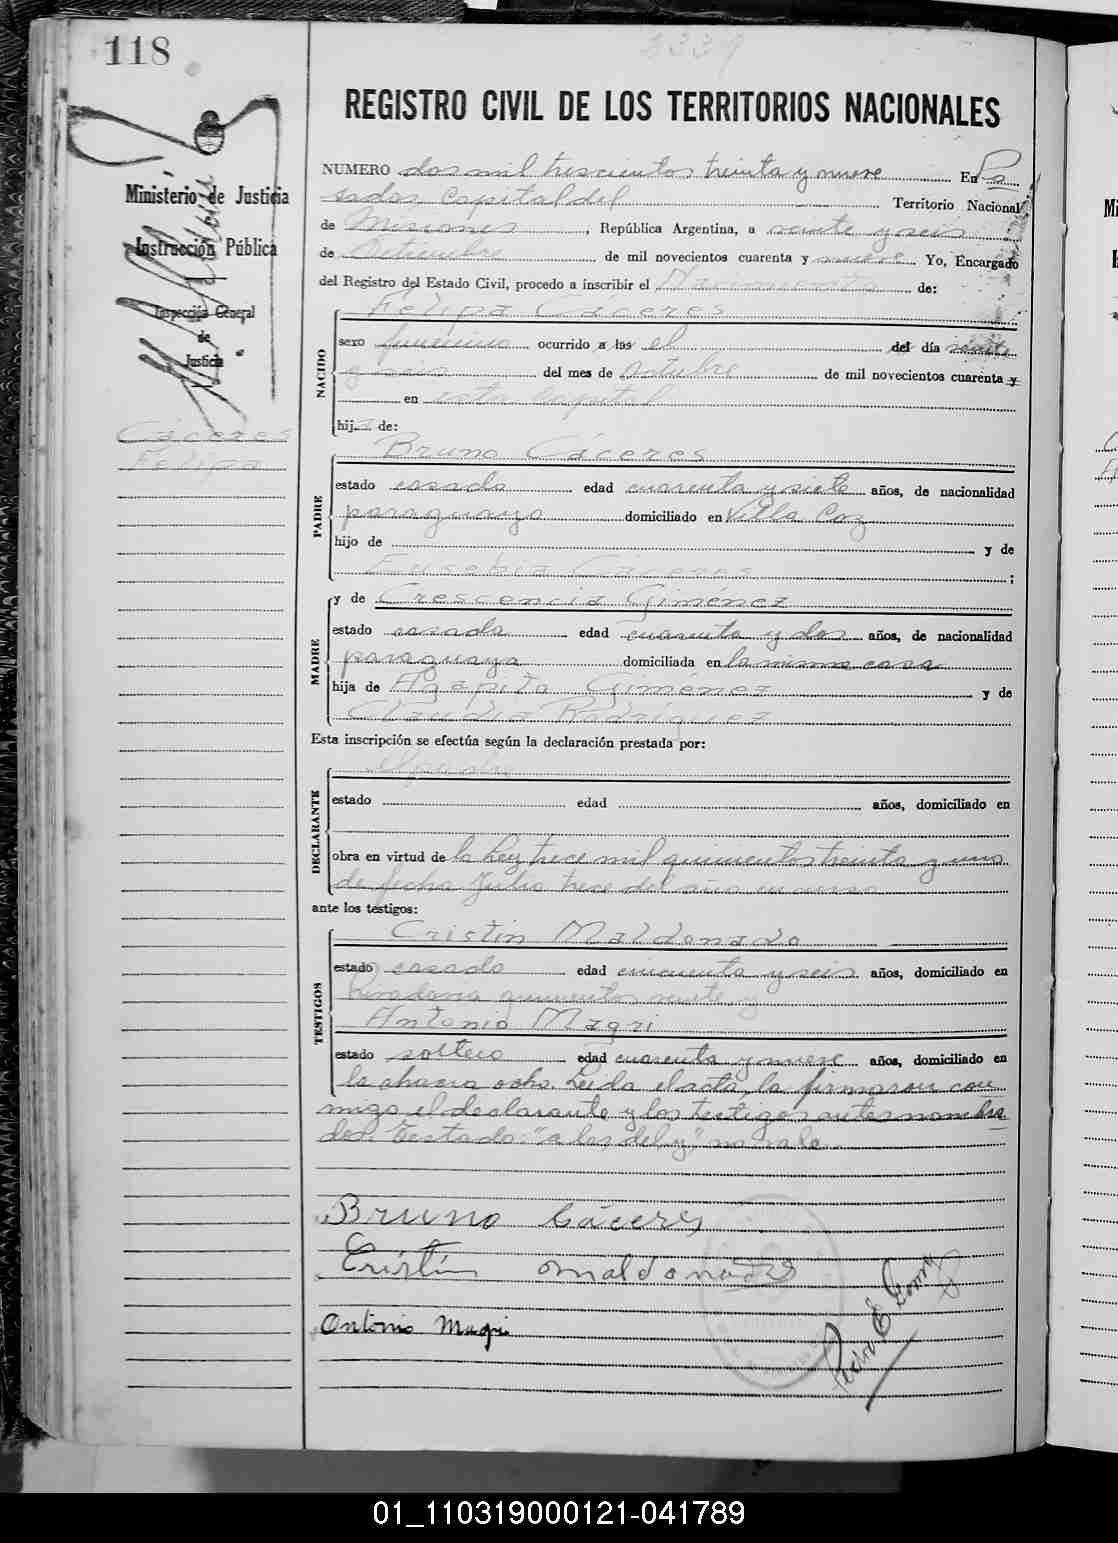 118
REGISTRO CIVIL DE LOS TERRITORIOS NACIONALES
Ministerio de Justicia
Instrucción Pública
Inspección General
de
Justicia
Cáceres
Felipa
NUMERO dos mil trescientos treinta y nueve En Po
sadas, Capital del Territorio Nacional
de Misiones, República Argentina, a veinte y seis
de de mil novecientos cuarenta y nueve Yo, Encargado
del Registro del Estado Civil, procedo a inscribir el Nacimiento de:
NACIDO
Felipa Cáceres
sexo femenino ocurrido a las el del día veinte
y seis del mes de Octubre de mil novecientos cuarenta y
en esta Capital
hija de:
PADRE
Bruno Cáceres
estado casado edad cuarenta y siete años, de nacionalidad
paraguayo domiciliado en Villa Coz
hijo de y de
Eusebia Cáceres ;
MADRE
y de Crescencia Giménez
estado casada edad cuarenta y dos años, de nacionalidad
paraguaya domiciliada en la misma casa
hija de Agapito Giménez y de
Claudia Rodríguez
Esta inscripción se efectúa según la declaración prestada por:
DECLARANTE
el padre
estado edad años, domiciliado en
obra en virtud de la Ley trece mil quinientos treinta y uno
de fecha Julio trece del año en curso
ante los testigos:
TESTIGOS
Cristin Maldonado
estado casado edad cincuenta y seis años, domiciliado en
Rivadavia quinientos veinte y
Antonio Magri
estado soltero edad cuarenta y nueve años, domiciliado en
la chacra ocho. Leida el acta, la firmaron con
migo el declarante y los testigos antes nombra
dos. Testado: "a las, del, y," no vale.
Bruno Cáceres
Cristin Maldonado
Antonio Magri
01_110319000121-041789